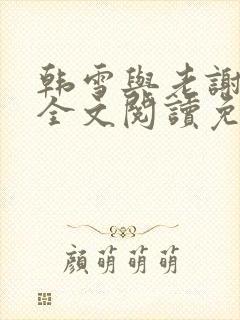 韩雪與老謝
全文閱讀免
顔萌萌萌